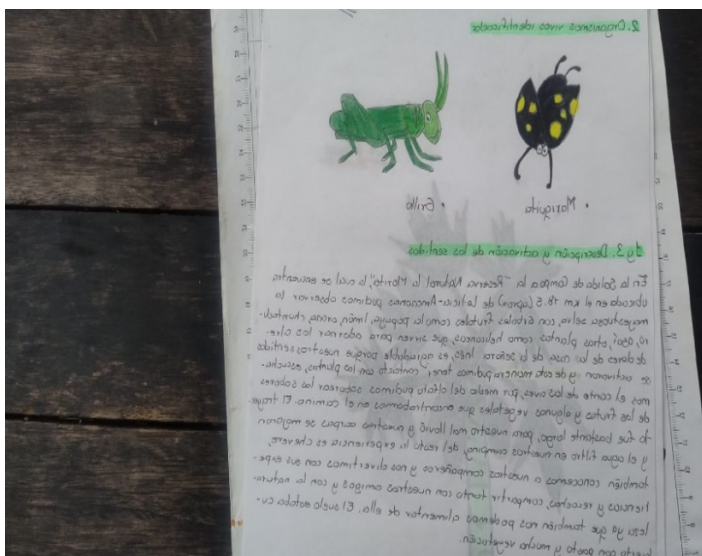 2. Organismos vivos identificados
• Mariquita
• Grillo
1 y 3. Descripción y activación de los sentidos
En la Salida de Campo a la "Reserva Natural la Morita", la cual se encuentra
ubicada en el km 18.5 (Capon) de Leticia-Amazonas pudimos observar la
majestuosa selva, con árboles frutales como la papaya, limón, arena, chuntadu-
ro, asaí, otras plantas como heliconias, que sirven para adornar los alre-
dedores de la casa de la señora Inés, es agradable porque nuestros sentidos
se activaron y de esta manera pudimos tener contacto con las plantas, escucha-
mos el canto de las aves, por medio del olfato pudimos saborear los sabores
de las frutas y algunos vegetales que encontrábamos en el camino. El traye-
to fue bastante largo, para nuestro mal llovió y nuestras carpas se mojaron
y el agua filtro en nuestros camping, del resto la experiencia es chevere,
también conocemos a nuestros compañeros y nos divertimos con sus expe-
riencias y recochas, compartir tanto con nuestros amigos y con la natura-
leza ya que también nos podemos alimentar de ella. El suelo estaba cu-
bierto con pasto y mucha vegetación.